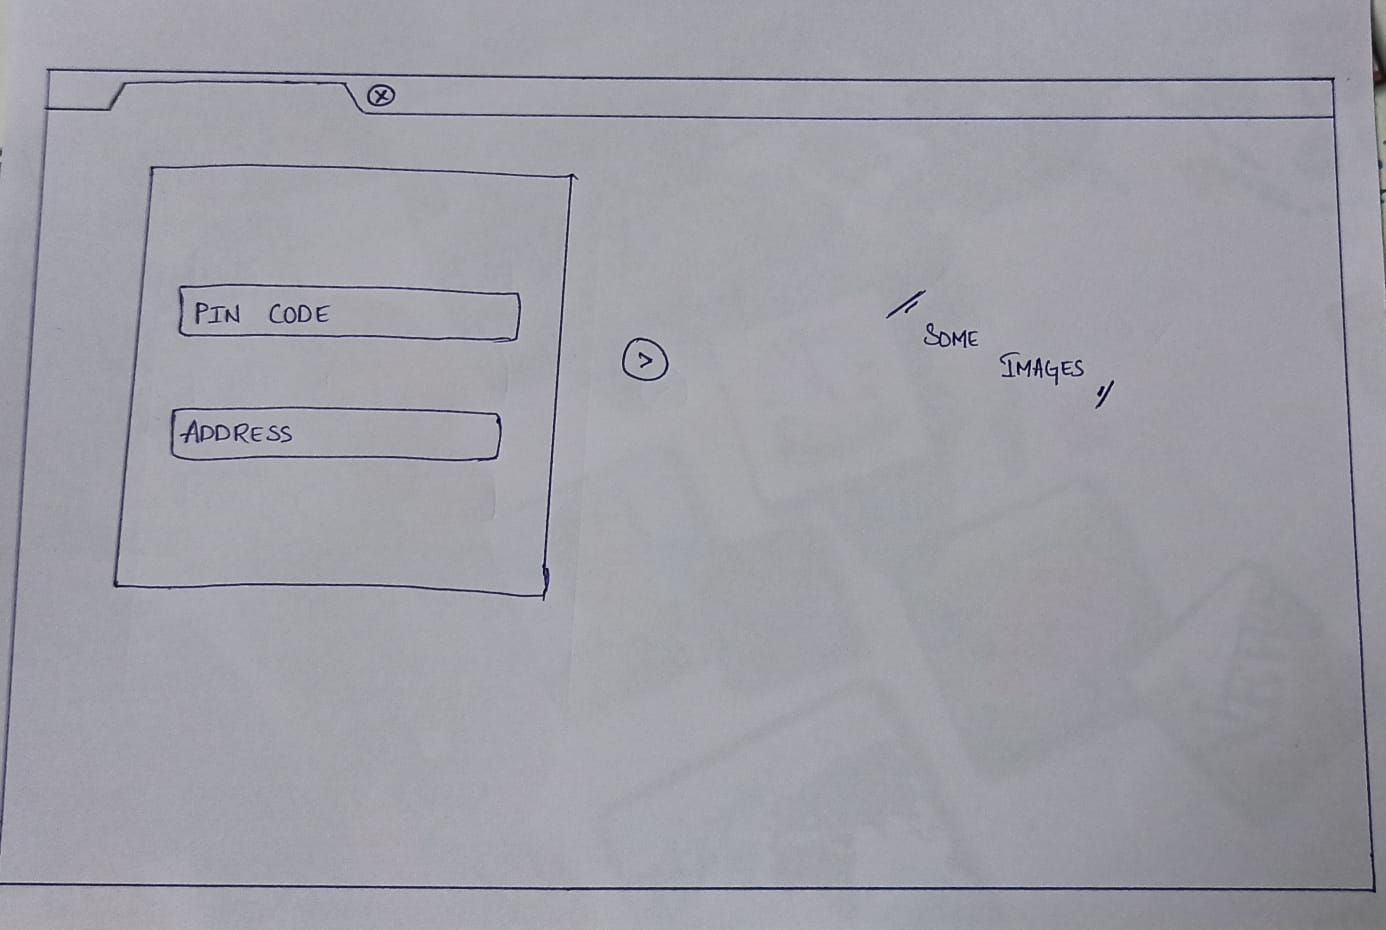 PIN CODE
ADDRESS
>
" SOME
IMAGES "